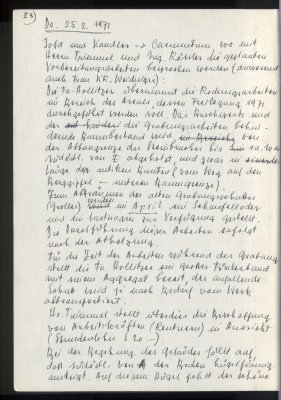 24)
Do. 25.2.1971
Jobst und Kandler → Carnuntum, wo mit
Herrn Trimmel und Ing. Rössler die geplanten
Vorbereitungsarbeiten besprochen werden (anwesend
auch Frau KR. Weidinger):
Die Fa. Hollitzer übernimmt die Rodungsarbeiten
im Bereich des Areals, dessen Freilegung 1971
durchgeführt werden soll. Das Buschwerk und
der die Grabungsarbeiten behin-
dernde Baumbestand wird von
der Abbaugrenze des Steinbruches bis ca. 10 m
südöstl. von abgeholzt, und zwar in
Länge des antiken (vom Weg auf den
Berggipfel – untere Baumgrenze).
Zum Abräumen der alten Grabungsschutt
(Groller) werden im April ein Schaufellader
und ein Lastwagen zur Verfügung gestellt.
Die Durchführung dieser Arbeiten erfolgt
nach der Abholzung.
Für die Zeit der Arbeiten während der Grabung
stellt die Fa. Hollitzer ein großes Förderband
mit einem Aggregat bereit, der anfallende
Schutt wird je nach Bedarf vom Werk
abtransportiert.
Hr. Trimmel stellt überdies die Beschaffung
von Arbeitskräften (Rentnern) in Aussicht
(Stundenlohn S 20.–)
Bei der Begehung des Geländes fällt auf,
daß südöstl. von der Boden hügelförmig
ansteigt. Auf diesem Hügel fehlt der schöne